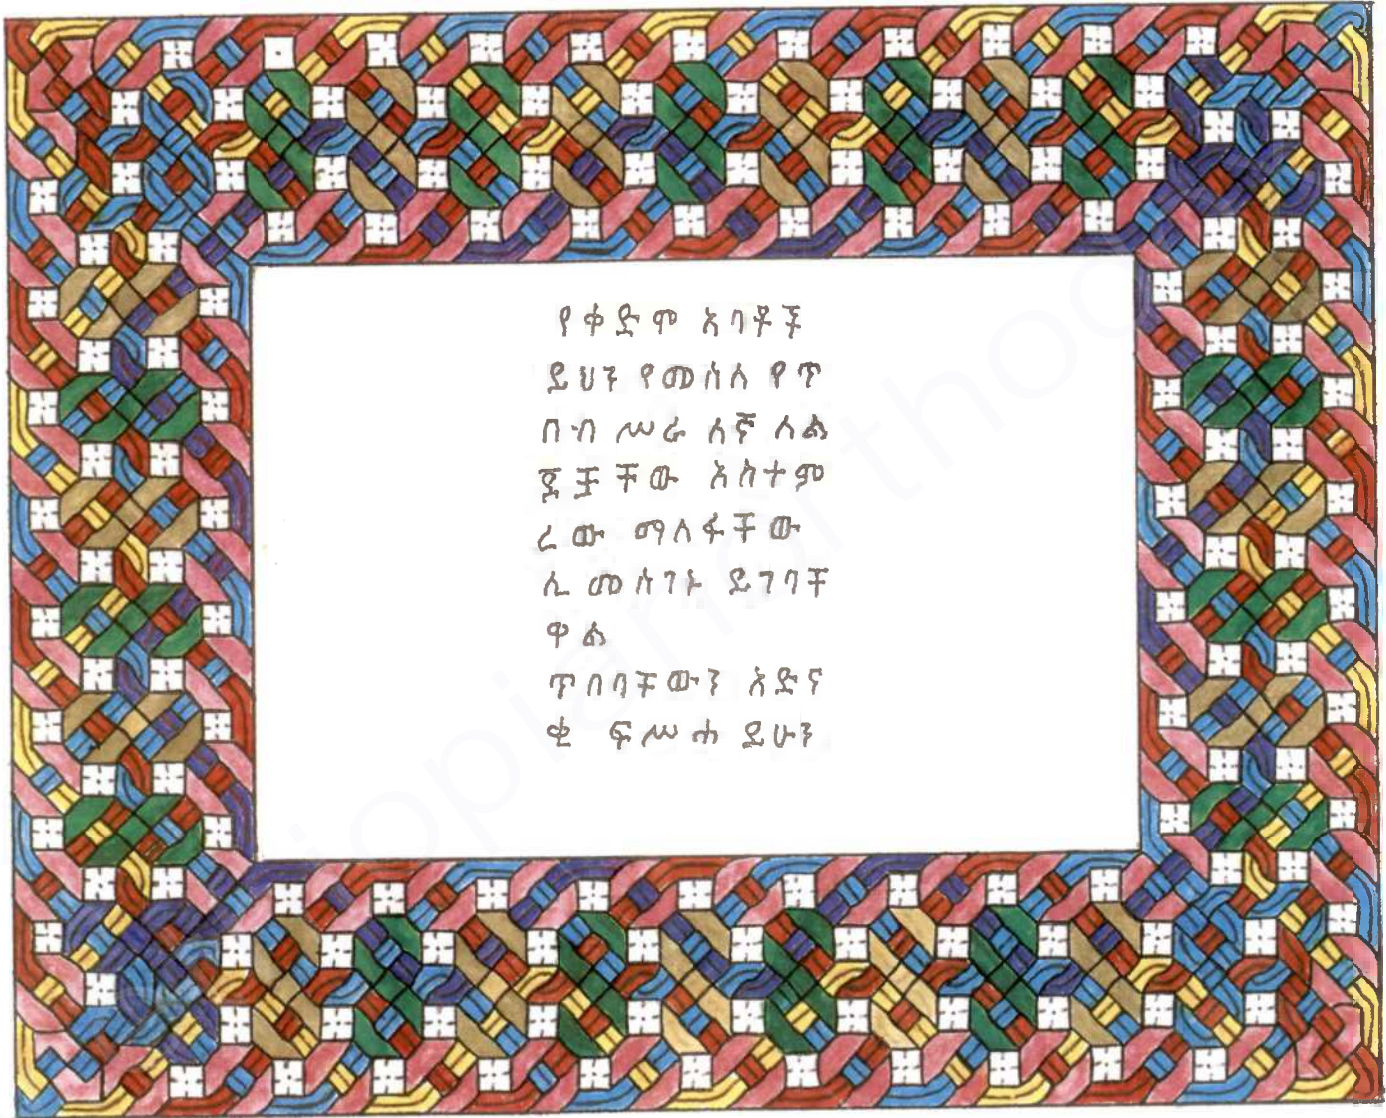 የቀድሞ አባቶች
ይህን የመሰለ የጥ
በብ ሥራ ለኛ ለል
ጆቿቸው አስተም
ረው ማለፋቸው
ሊመሰገኑ ይገባቸ
ዋል
ጥበባቸውን አድና
ቂ ፍሥሐ ይሁን